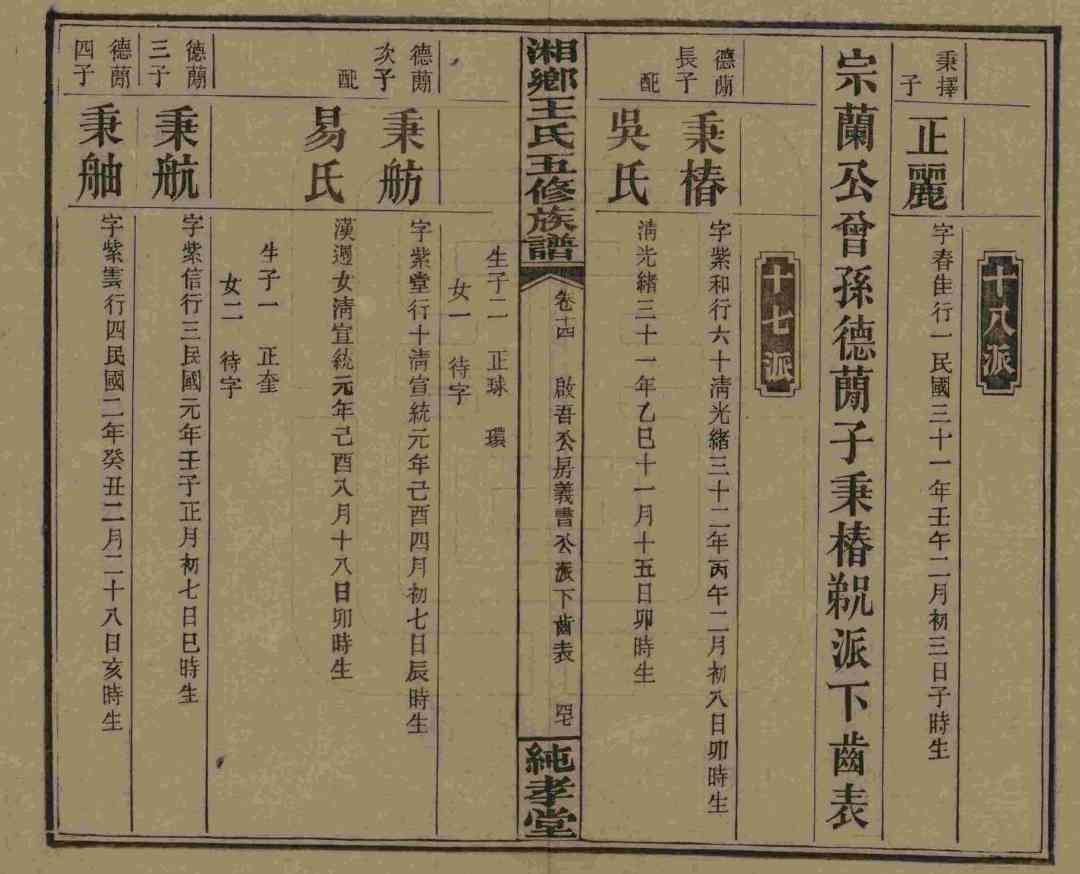 十八派
秉擇子
正麗
字春佳行一民國三十一年壬午二月初三日子時生
宗蘭公曾孫德蕑子秉椿祝派下齒表
十七派
德蕑長子
秉椿
字紫和行六十淸光緒三十二年丙午二月初八日卯時生
配
吳氏
淸光緒三十一年乙巳十一月十五日卯時生
湘鄉王氏五修族譜
卷十四
啟吾公房義書公派下齒表
純孝堂
生子二 正球 環
女一 待字
德蕑次子
秉舫
字紫堂行十淸宣統元年己酉四月初七日辰時生
配
易氏
漢週女淸宣統元年己酉八月十八日卯時生
生子一 正奎
女二 待字
德蕑三子
秉航
字紫信行三民國元年壬子正月初七日巳時生
德蕑四子
秉舳
字紫雲行四民國二年癸丑二月二十八日亥時生